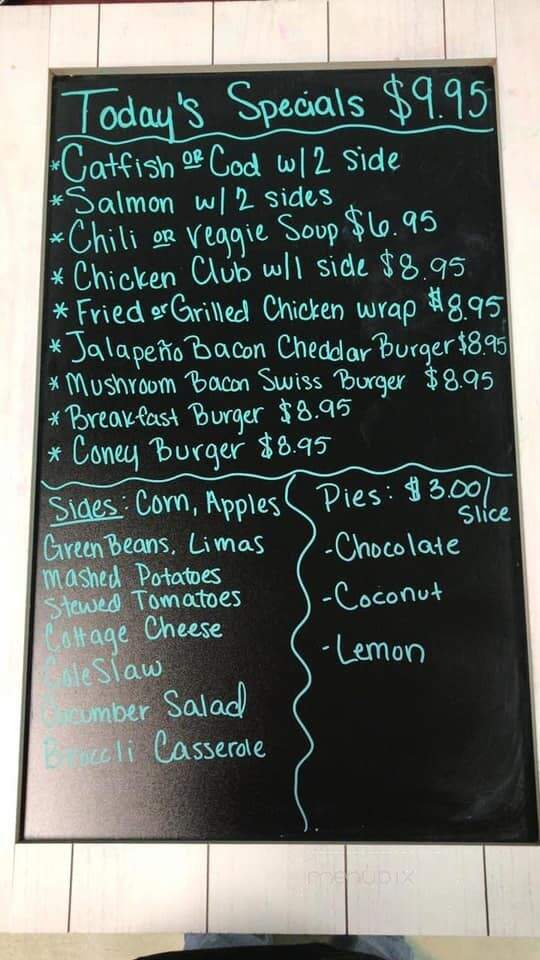 Today's Specials $9.95
*Catfish OR Cod w/2 side
*Salmon w/2 sides
*Chili OR veggie Soup $6.95
* Chicken Club w/1 side $8.95
* Fried or Grilled Chicken wrap $8.95
* Jalapeño Bacon Cheddar Burger $8.95
* Mushroom Bacon Swiss Burger $8.95
* Breakfast Burger $8.95
* Coney Burger $8.95
Sides: Corn, Apples
Green Beans, Limas
Mashed Potatoes
Stewed Tomatoes
Cottage Cheese
Cole Slaw
Cucumber Salad
Broccli Casserole
Pies: $3.00/
Slice
-Chocolate
-Coconut
-Lemon
menupix